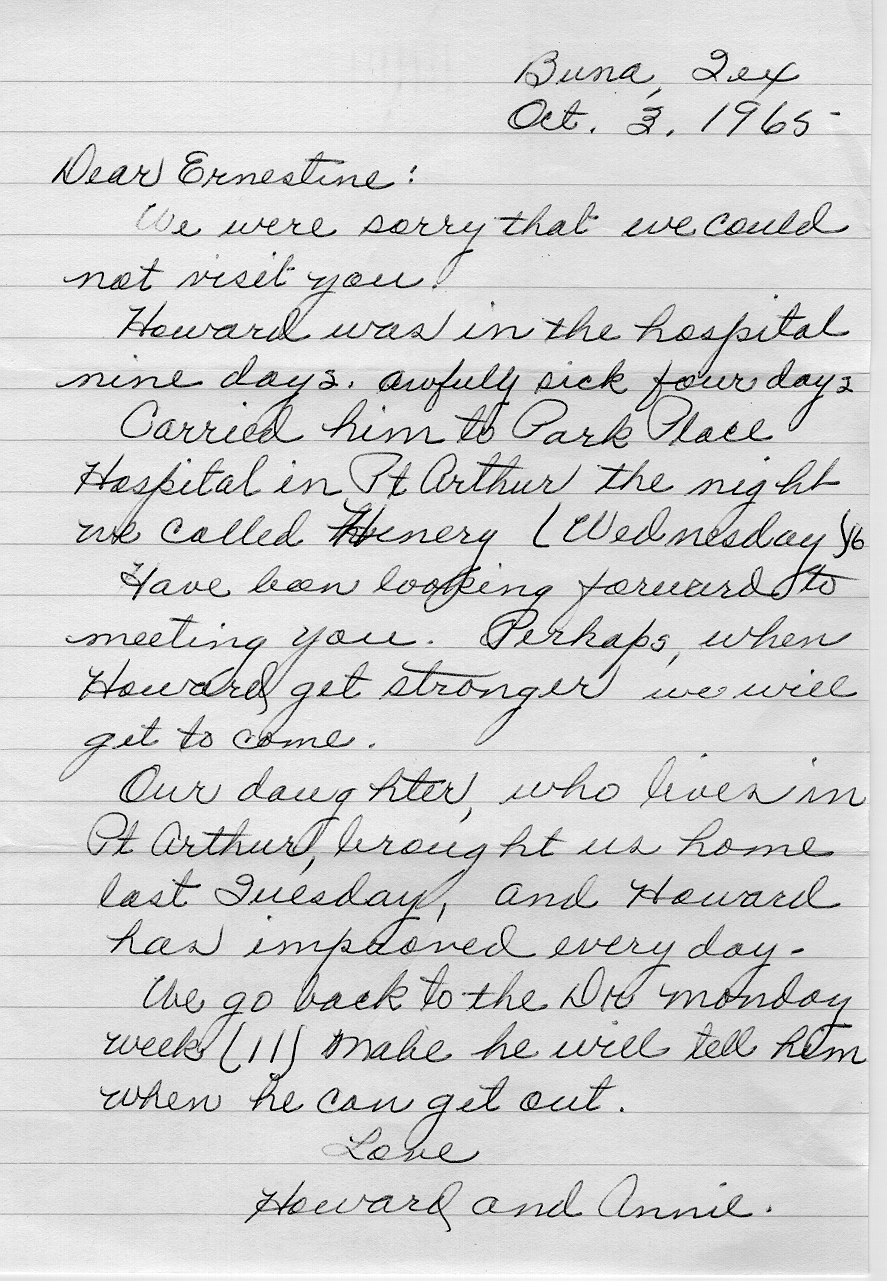 Buna, Tex
Oct. 3, 1965
Dear Ernestine:
We were sorry that we could
not visit you.
Howard was in the hospital
nine days. awfully sick four days
Carried him to Park Place
Hospital in Pt Arthur the night
we called Hinery (Wednesday)
Have been looking forward to
meeting you. Perhaps, when
Howard get stronger we will
get to come.
Our daughter, who lives in
Pt Arthur, brought us home
last Tuesday, and Howard
has improved every day.
We go back to the Dr monday
week (11) Mabe he will tell him
when he can get out.
Love
Howard and Annie.